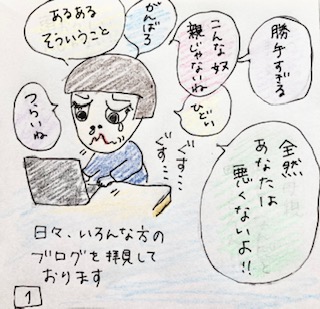 勝手
すぎる
こんな奴
親じゃないね
ひどい
がんばろ
あるある
そういうこと
つらいね
全然
あなたは
悪くないよ!!
ぐす…
ぐす…
日々、いろんな方の
ブログを拝見して
おります
1